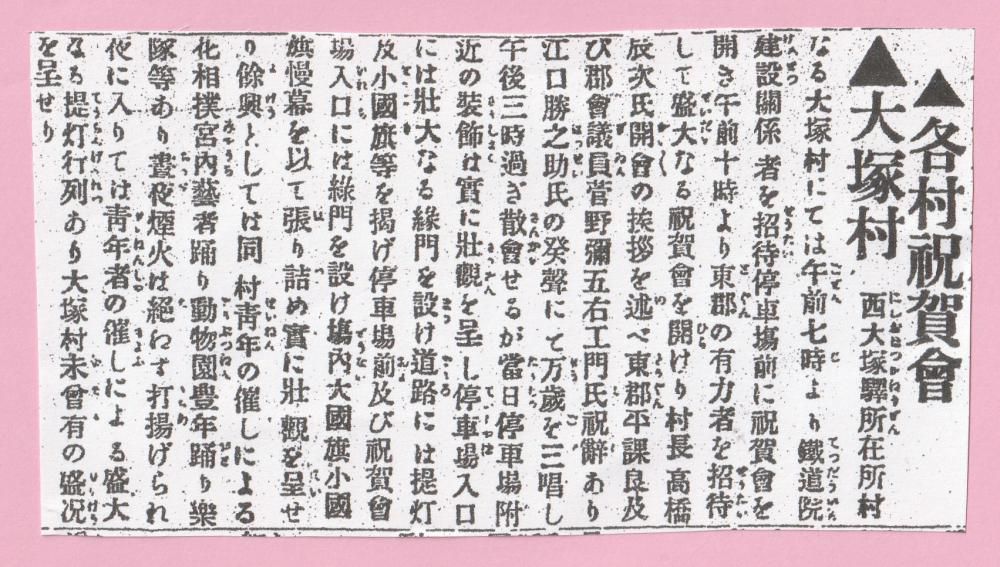 ▲各村祝賀會
▲大塚村　西大塚驛所在所村
なる大塚村にては午前七時より鐵道院
建設關係者を招待停車塲前に祝賀會を
開き午前十時より東郡の有力者を招待
して盛大なる祝賀會を開けり村長高橋
辰次氏開會の挨拶を述べ東郡平課良及
び郡會議員菅野彌五右工門氏祝辭あり
江口勝之助氏の癸聲にて万歲を三唱し
午後三時過ぎ散會せるが當日停車場附
近の裝飾は實に壯觀を呈し停車場入口
には壯大なる緣門を設け道路には提灯
及小國旗等を揭げ停車場前及び祝賀會
場入口には綠門を設け塲內大國旗小國
旗慢幕を以て張り詰め實に壯觀を呈せ
り餘興としては同村靑年の催しによる
花相撲宮內藝者踊り動物園豊年踊り樂
隊等あり晝夜煙火は絕わす打揚げられ
夜に入りては靑年者の催しによる盛大
なる提灯行列あり大塚村未曾有の盛况
を呈せり